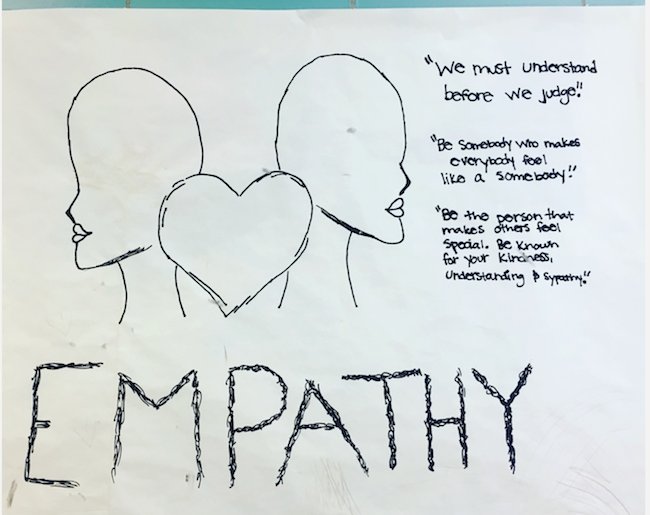 "We must understand
before we judge!"
"Be Somebody who makes
everybody feel
like a somebody!"
"Be the person that
makes others feel
special. Be known
for your kindness,
understanding & sypathy."
EMPATHY